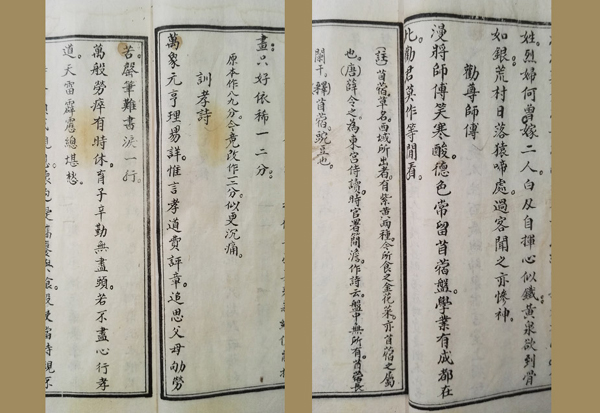 姓烈婦何曾嫁二人白刄自揮心似鐵黃泉欲到骨
如銀荒村日落猿啼處過客聞之亦慘神。
勸尊師傅
漫將師傅笑寒酸德色常留苜蓿盤學業有成都在
此勸君莫作等閒看。
(註)苜蓿草名。西域所出者。有紫黃兩種。今所食之金花菜。亦苜蓿之屬
也。(唐)薛令之為東宮侍讀。時官署簡澹。作詩云。盤中無所有。苜蓿長
闌干。釋苜蓿。豌豆也。
盡只好依稀一二分。
原本作八九分。今竟改作一二分。似更沉痛。
訓孝詩
萬象元亨理易詳惟言孝道費評章追思父母劬勞
苦罄筆難書淚一行。
萬般勞瘁有時休育子辛勤無盡頭若不盡心行孝
道天雷霹靂總堪愁。